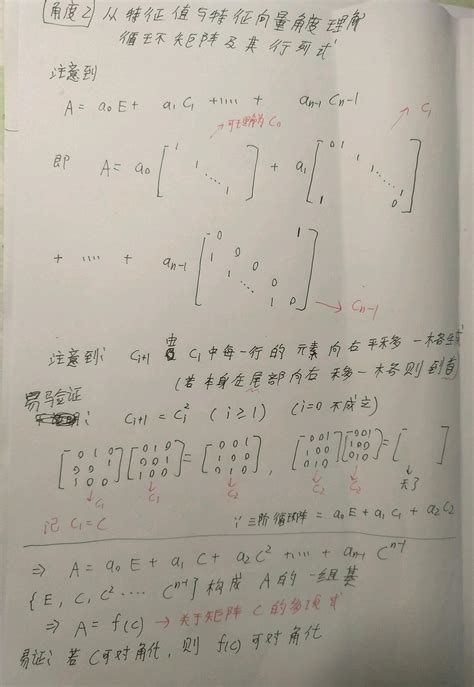 角度2 从特征值与特征向量角度理解
循环矩阵及其行列式
注意到
A = a₀E + a₁C₁ + .... + aₙ₋₁Cₙ₋₁
→可理解为C₀
→ C₁
即 A = a₀ [1 1 1 ⋱ 1] + a₁ [0 1 1 1 ⋱ 1 1 0]
+ .... + aₙ₋₁ [0 1 1 0 1 0 ⋱ 1 0]
→ Cₙ₋₁
注意到: Cᵢ₊₁ 由 Cᵢ 中每一行的元素向右平移一格生成
(若本身在尾部向右移一格则到首)
易验证: Cᵢ₊₁ = Cᵢ² (i≥1) (i=0 不成立)
[0 1 0 0 0 1 1 0 0] [0 1 0 0 0 1 1 0 0] = [0 0 1 1 0 0 0 1 0], [0 0 1 1 0 0 0 1 0] [0 0 1 1 0 0 0 1 0] = [ ]
C₁ C₁ C₂ C₂ C₂ 无了
记 C₁ = C
∵ 三阶循环阵 = a₀E + a₁C₁ + a₂C₂
⇒ A = a₀E + a₁C + a₂C² + .... + aₙ₋₁Cⁿ⁻¹
{E, C, C² .... Cⁿ⁻¹} 构成 A 的一组基
⇒ A = f(C) → 关于矩阵C的多项式
易证: 若C可对角化, 则 f(C) 可对角化